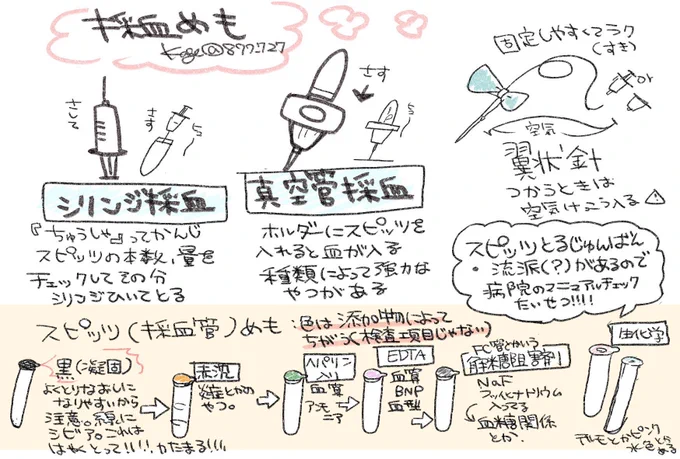 採血めも
さして
さす
シリンジ採血
『ちゅうしゃ』ってかんじ
スピッツの本数、量を
チェックしてその分
シリンジひいてとる
さす
真空管採血
ホルダーにスピッツを
入れると血が入る
種類によって強力な
やつがある
固定しやすくてラク
(すき)
or
空気
翼状針
つかうときは
空気けっこう入る
スピッツとるじゅんばん
・流派(?)があるので
病院のマニュアルチェック
たいせつ!!!!
スピッツ(採血管)めも:色は添加物によって
ちがう(検査項目じゃない)
黒(凝固)
よくとりなおしに
なりやすいから
注意。線に
シビア。これは
はやくとって!!!!かたまる!!!
やつ。
ヘパリン
入り
血算
アンモ
ニア
EDTA
血算
BNP
血型
FC管とかいう
解糖阻害剤
NaF
フッ化ナトリウム
入ってる
血糖関係
とか。
生化学
テルモとかピンク
水色とか
ある